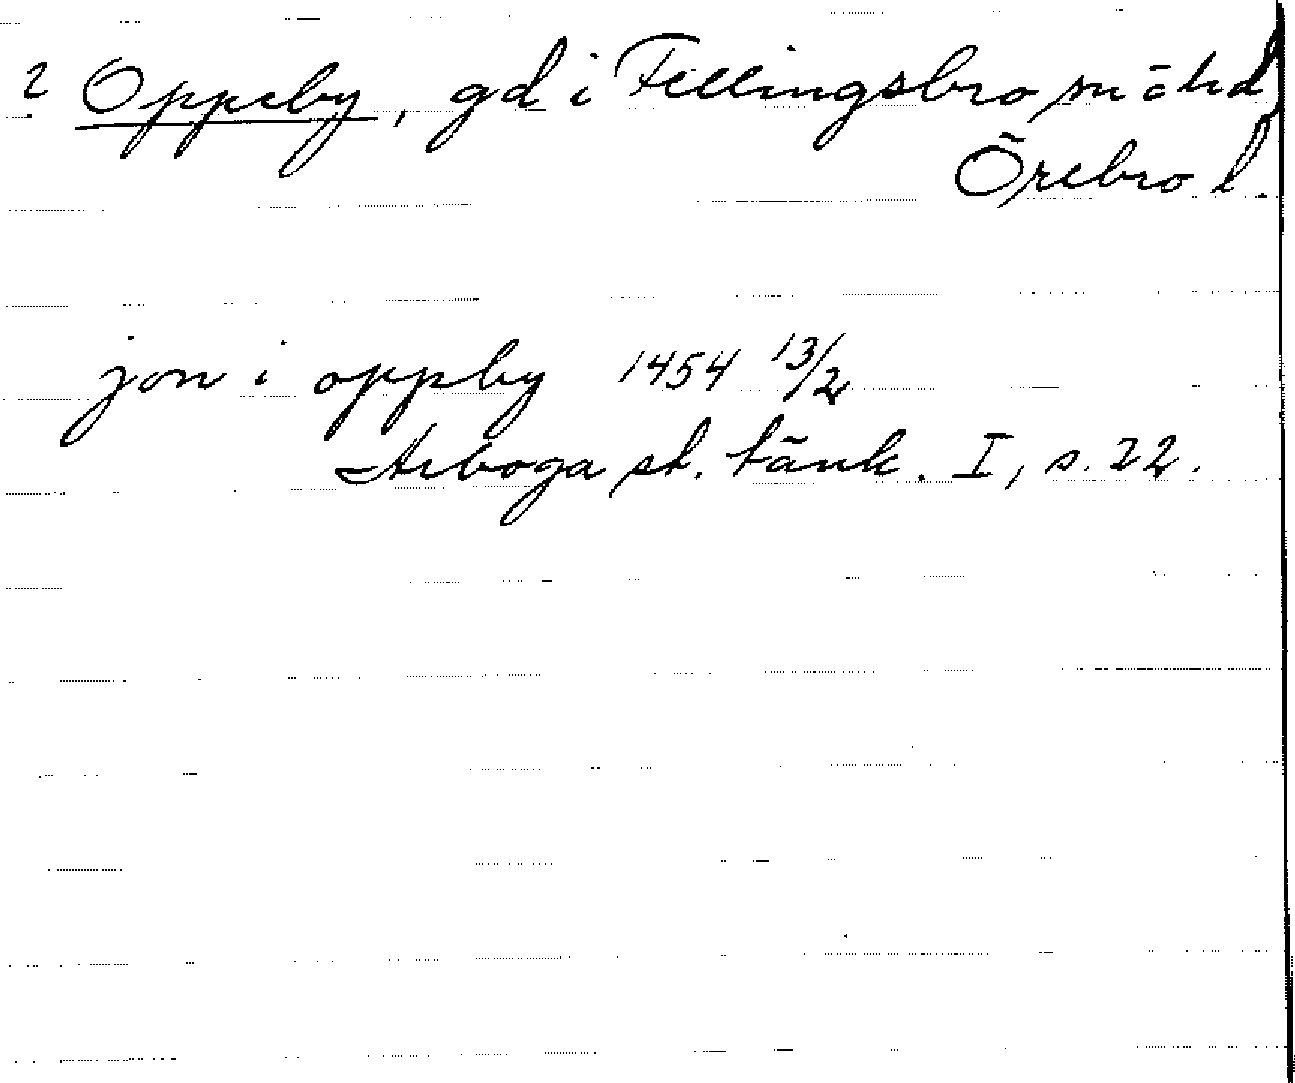 ? Oppeby, gd i Fellingsbro sn o hd,
Örebro l.
jon i oppby 1454 13/2
Arboga st. tänk. I, s. 22.